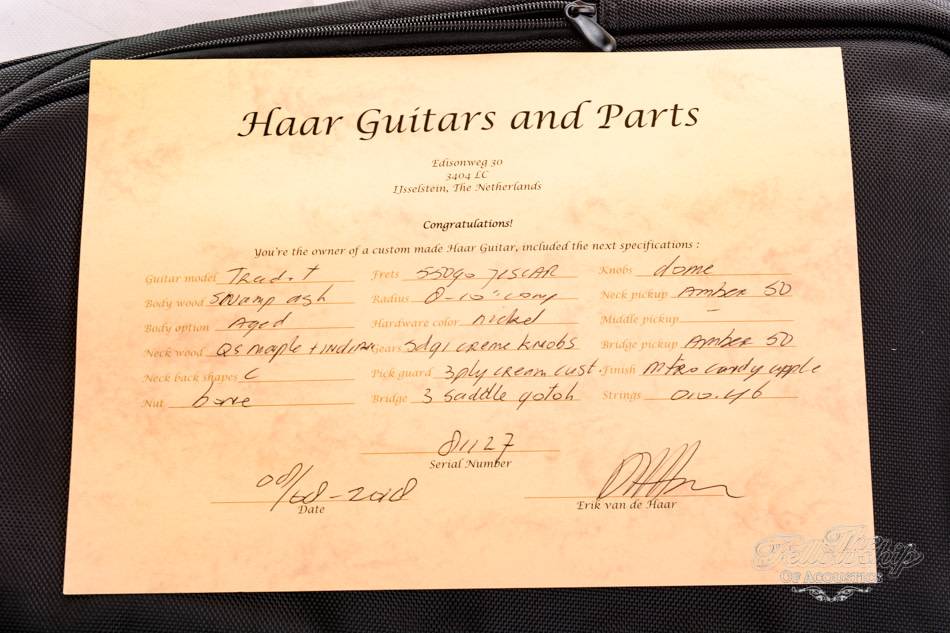 Haar Guitars and Parts
Edisonweg 30
3404 LC
IJsselstein, The Netherlands
Congratulations!
You're the owner of a custom made Haar Guitar, included the next specifications :
Guitar model Trad. T Frets Knobs dome
Body wood Swamp ash Radius Neck pickup Amber 50
Body option Aged Hardware color nickel Middle pickup –
Neck wood QS maple + Gears creme knobs Bridge pickup Amber 50
Neck back shapes C Pick guard 3ply cream cust. Finish candy apple
Nut bone Bridge 3 saddle gotoh Strings 010.46
81127
Serial Number
Date
Erik van de Haar
The Fellowship
Of Acoustics